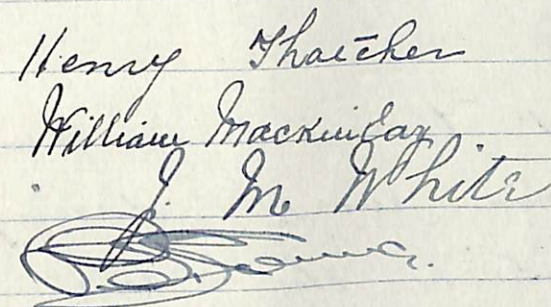 Henry Thatcher
William Mackinlay
J. M White